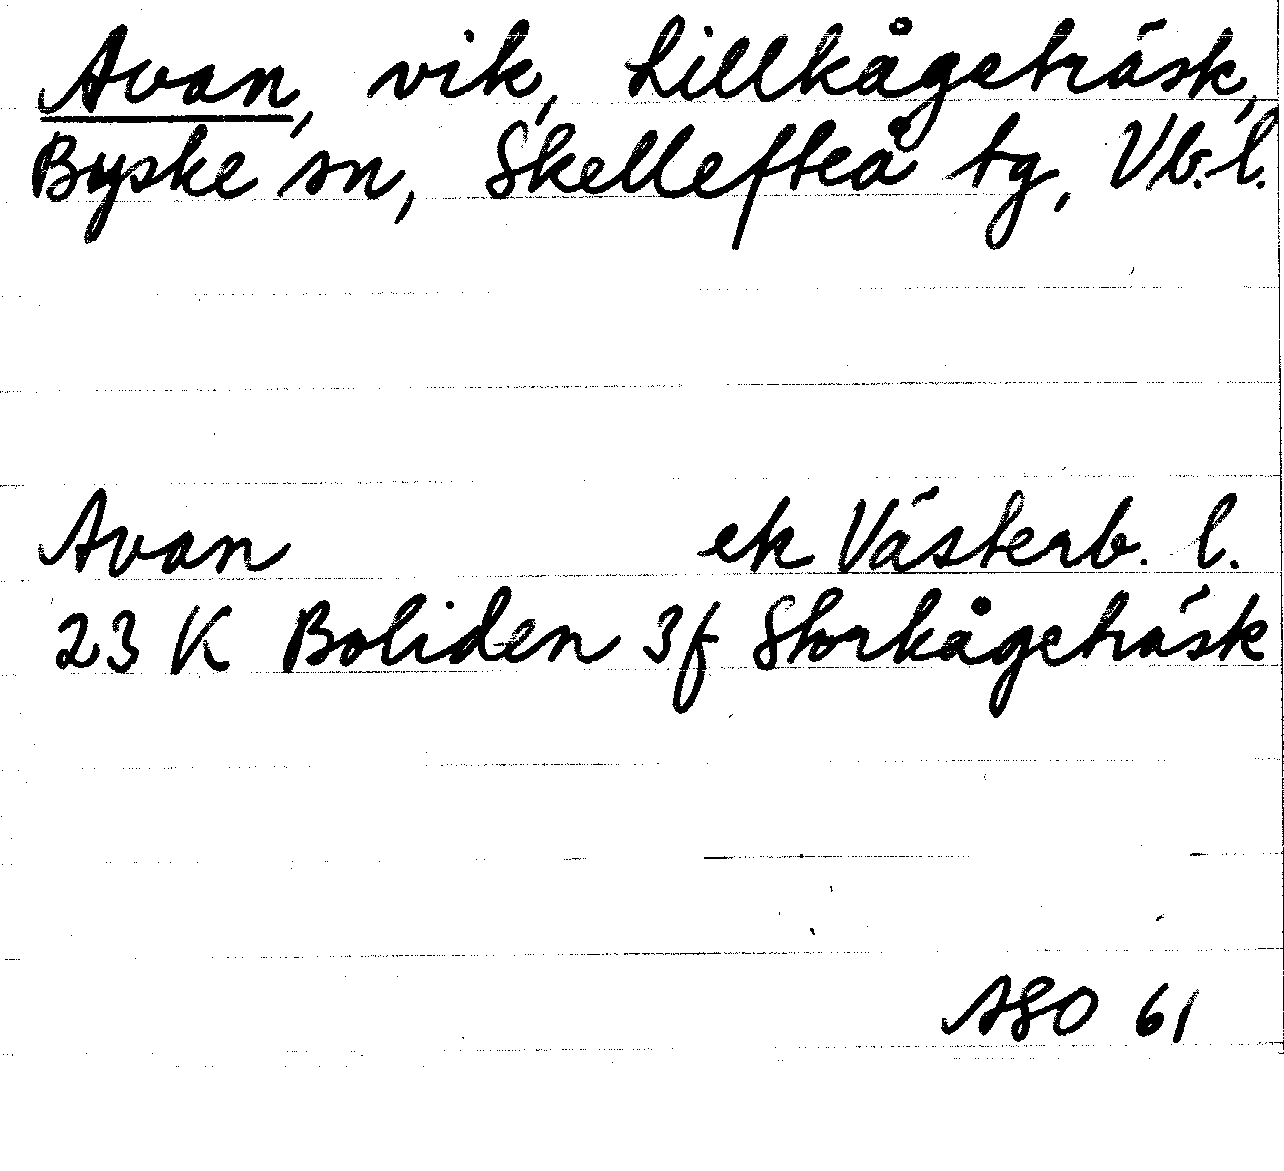 Avan, vik, Lillkågeträsk,
Byske sn, Skellefteå tg, Vb. l.
Avan ek Västerb. l.
23 K Boliden 3f Storkågeträsk
ASO 61